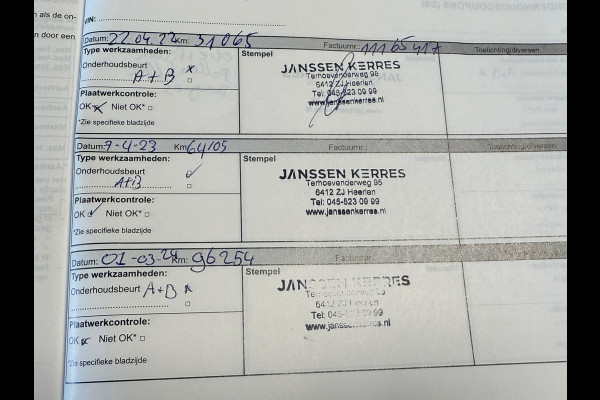 en als de on-
VIN:
n door een
Datum: 22.04.22 km: 31065 Factuurnr.: 11165417 Toelichting/diversen
Type werkzaamheden: Stempel
Onderhoudsbeurt x
A+B
JANSSEN KERRES
Terhoevenderweg 95
6412 ZJ Heerlen
Tel: 045-523 09 99
www.janssenkerres.nl
Plaatwerkcontrole:
OK x Niet OK*
*Zie specifieke bladzijde
Datum: 7-4-23 Km 64105 Factuurnr.: Toelichting/diversen
Type werkzaamheden: Stempel
Onderhoudsbeurt
A+B
JANSSEN KERRES
Terhoevenderweg 95
6412 ZJ Heerlen
Tel: 045-523 09 99
www.janssenkerres.nl
Plaatwerkcontrole:
OK Niet OK*
*Zie specifieke bladzijde
Datum: 01-03-24 Km: 96254 Factuurnr.
Type werkzaamheden: Stempel
Onderhoudsbeurt A+B x
JANSSEN KERRES
6412 ZJ Heerlen
Tel: 045-523 09 99
www.janssenkerres.nl
Plaatwerkcontrole:
OK x Niet OK*
*Zie specifieke bladzijde